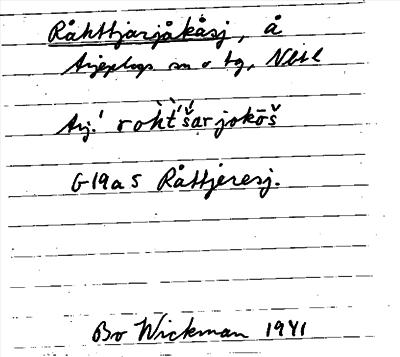 Råhttjarjåkåsj, å
Arjeplogs sn o tg, Nbtl
Arj.! rohtšarjokōš
G19a5 Råttjeresj.
Bo Wickman 1941